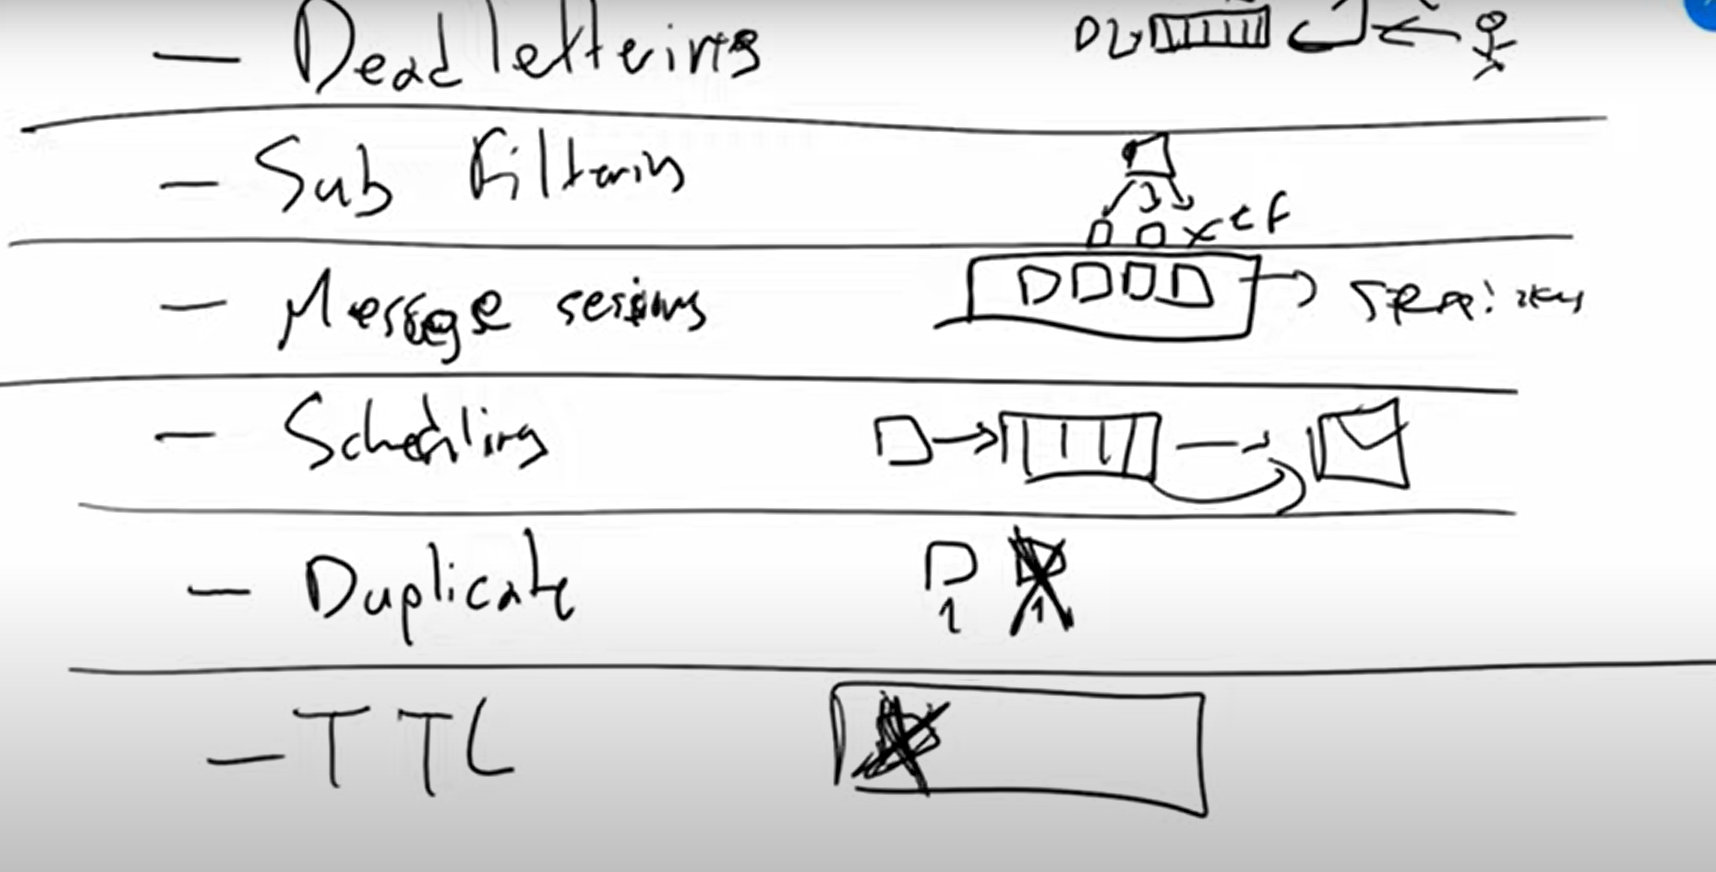 — Dead lettering DL
— Sub Filtering
— Message sessions
— Scheduling
— Duplicate 1 1
— TTL